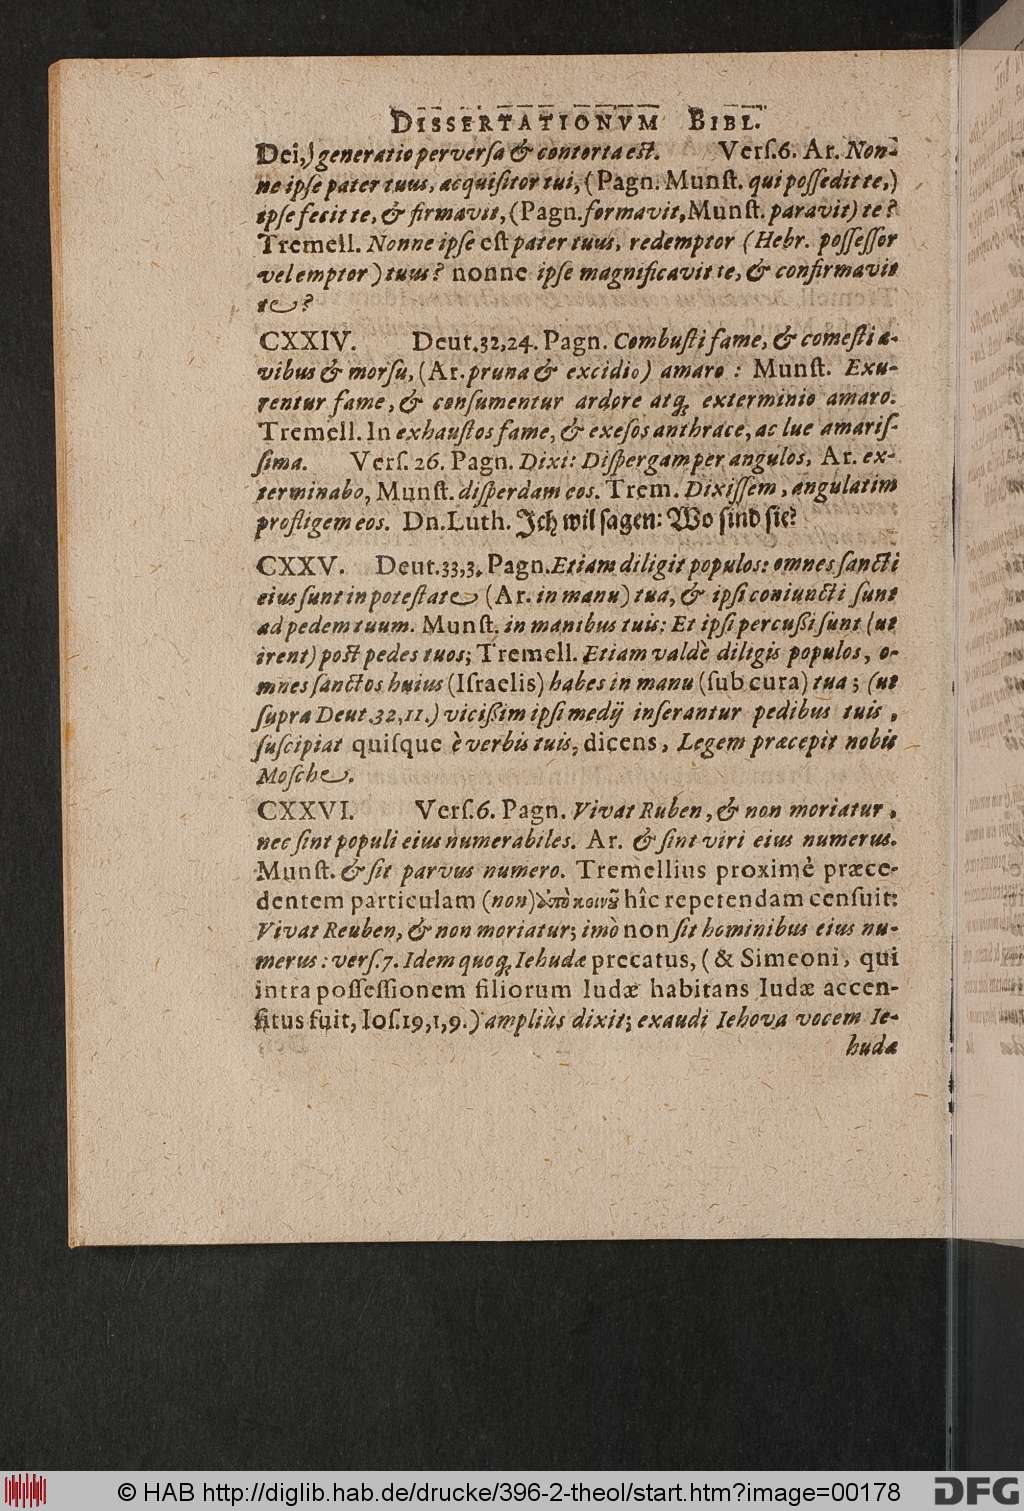 DISSERTATIONVM BIBL.
Dei,) generatio perversa & contorta est. Verſ.6. Ar. Non-
ne ipſe pater tuus, acquiſitor tui, (Pagn. Munſt. qui poſſedit te,)
ipſe fecit te, & firmavit, (Pagn. formavit, Munſt. paravit) te?
Tremell. Nonne ipſe eſt pater tuus, redemptor (Hebr. poſſeſſor
vel emptor) tuus? nonne ipſe magnificavit te, & confirmavit
te?
CXXIV. Deut.32,24. Pagn. Combuſti fame, & comeſti a-
vibus & morſu, (Ar. pruna & excidio) amaro : Munſt. Exu-
rentur fame, & conſumentur ardore atq; exterminio amaro.
Tremell. In exhauſtos fame, & exeſos anthrace, ac lue amariſ-
ſima. Verſ. 26. Pagn. Dixi: Diſpergam per angulos, Ar. ex-
terminabo, Munſt. diſperdam eos. Trem. Dixiſſem, angulatim
profligem eos. Dn. Luth. Jch wil ſagen: Wo ſind ſie?
CXXV. Deut.33,3. Pagn. Etiam diligit populos: omnes ſancti
eius ſunt in poteſtate (Ar. in manu) tua, & ipſi coniuncti ſunt
ad pedem tuum. Munſt. in manibus tuis: Et ipſi percußi ſunt (ut
irent) poſt pedes tuos; Tremell. Etiam valdè diligis populos, o-
mnes ſanctos huius (Iſraelis) habes in manu (ſub cura) tua ; (ut
ſupra Deut.32,11.) vicißim ipſi medij inſerantur pedibus tuis,
ſuſcipiat quiſque è verbis tuis, dicens, Legem præcepit nobis
Moſche.
CXXVI. Verſ.6. Pagn. Vivat Ruben, & non moriatur,
nec ſint populi eius numerabiles. Ar. & ſint viri eius numerus.
Munſt. & ſit parvus numero. Tremellius proximè præce-
dentem particulam (non) ἀπὸ κοινοῦ hîc repetendam cenſuit:
Vivat Reuben, & non moriatur; imò non ſit hominibus eius nu-
merus : verſ.7. Idem quoq; Iehudæ precatus, (& Simeoni, qui
intra poſſeſſionem filiorum Iudæ habitans Iudæ accen-
ſitus fuit, Ioſ.19,1,9.) ampliùs dixit; exaudi Iehova vocem Ie-
hudæ
© HAB http://diglib.hab.de/drucke/396-2-theol/start.htm?image=00178
DFG